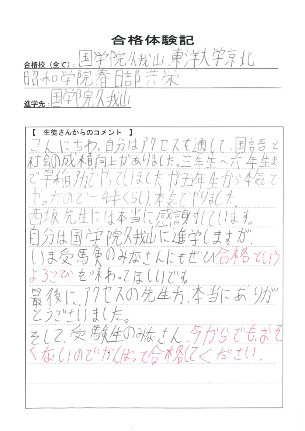 合格体験記
合格校（全て）: 国学院久我山 東洋大学京北
昭和学院 春日部共栄
進学先: 国学院久我山
【 生徒さんからのコメント 】
こんにちわ、自分はアクセスを通して、国語と
社会の成績向上がありました。三年生～六年生ま
で早稲アカでやっていましたが五年生から本気で
やったので一年くらい本気でやりました。
先生には本当に感謝しています。
自分は国学院久我山に進学しますが、
いま受験のみなさんにもぜひ合格という
よろこびを味わってほしいです。
最後に、アクセスの先生方、本当にありが
とうございました。
そして、受験生のみなさん、今からでもおそ
くないのでがんばって合格してください。